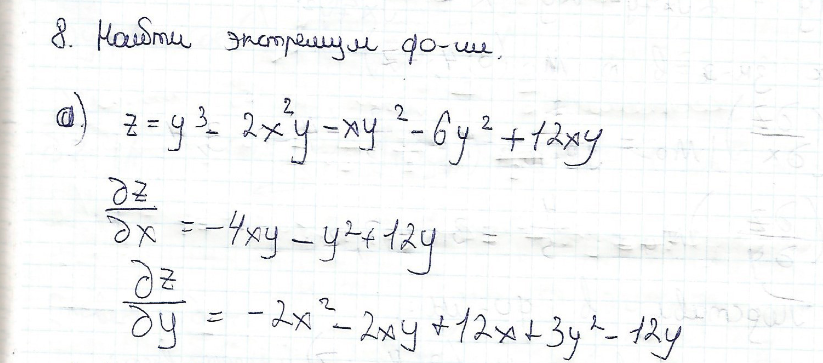 8. Найти экстремум ф-ции.
а) z = y³ - 2x²y - xy² - 6y² + 12xy
∂z/∂x = -4xy - y² + 12y
∂z/∂y = -2x² - 2xy + 12x + 3y² - 12y